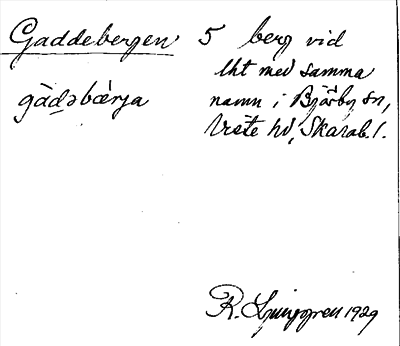 Gaddebergen 5 berg vid
lht med samma
gàdəbǽrja namn i Bjärby sn,
Viste hd, Skarab. l.
R. Ljunggren 1929